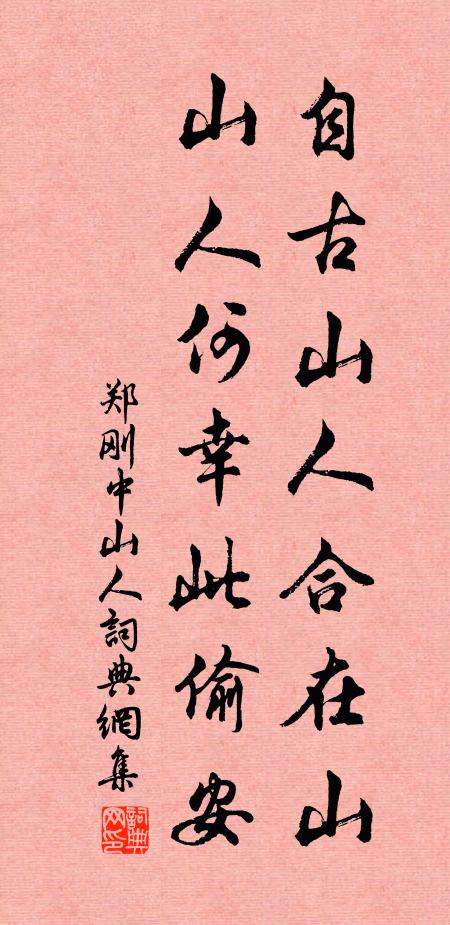 自古山人合在山
山人何幸此偷安
郑刚中山人詞典網集
詞典网印